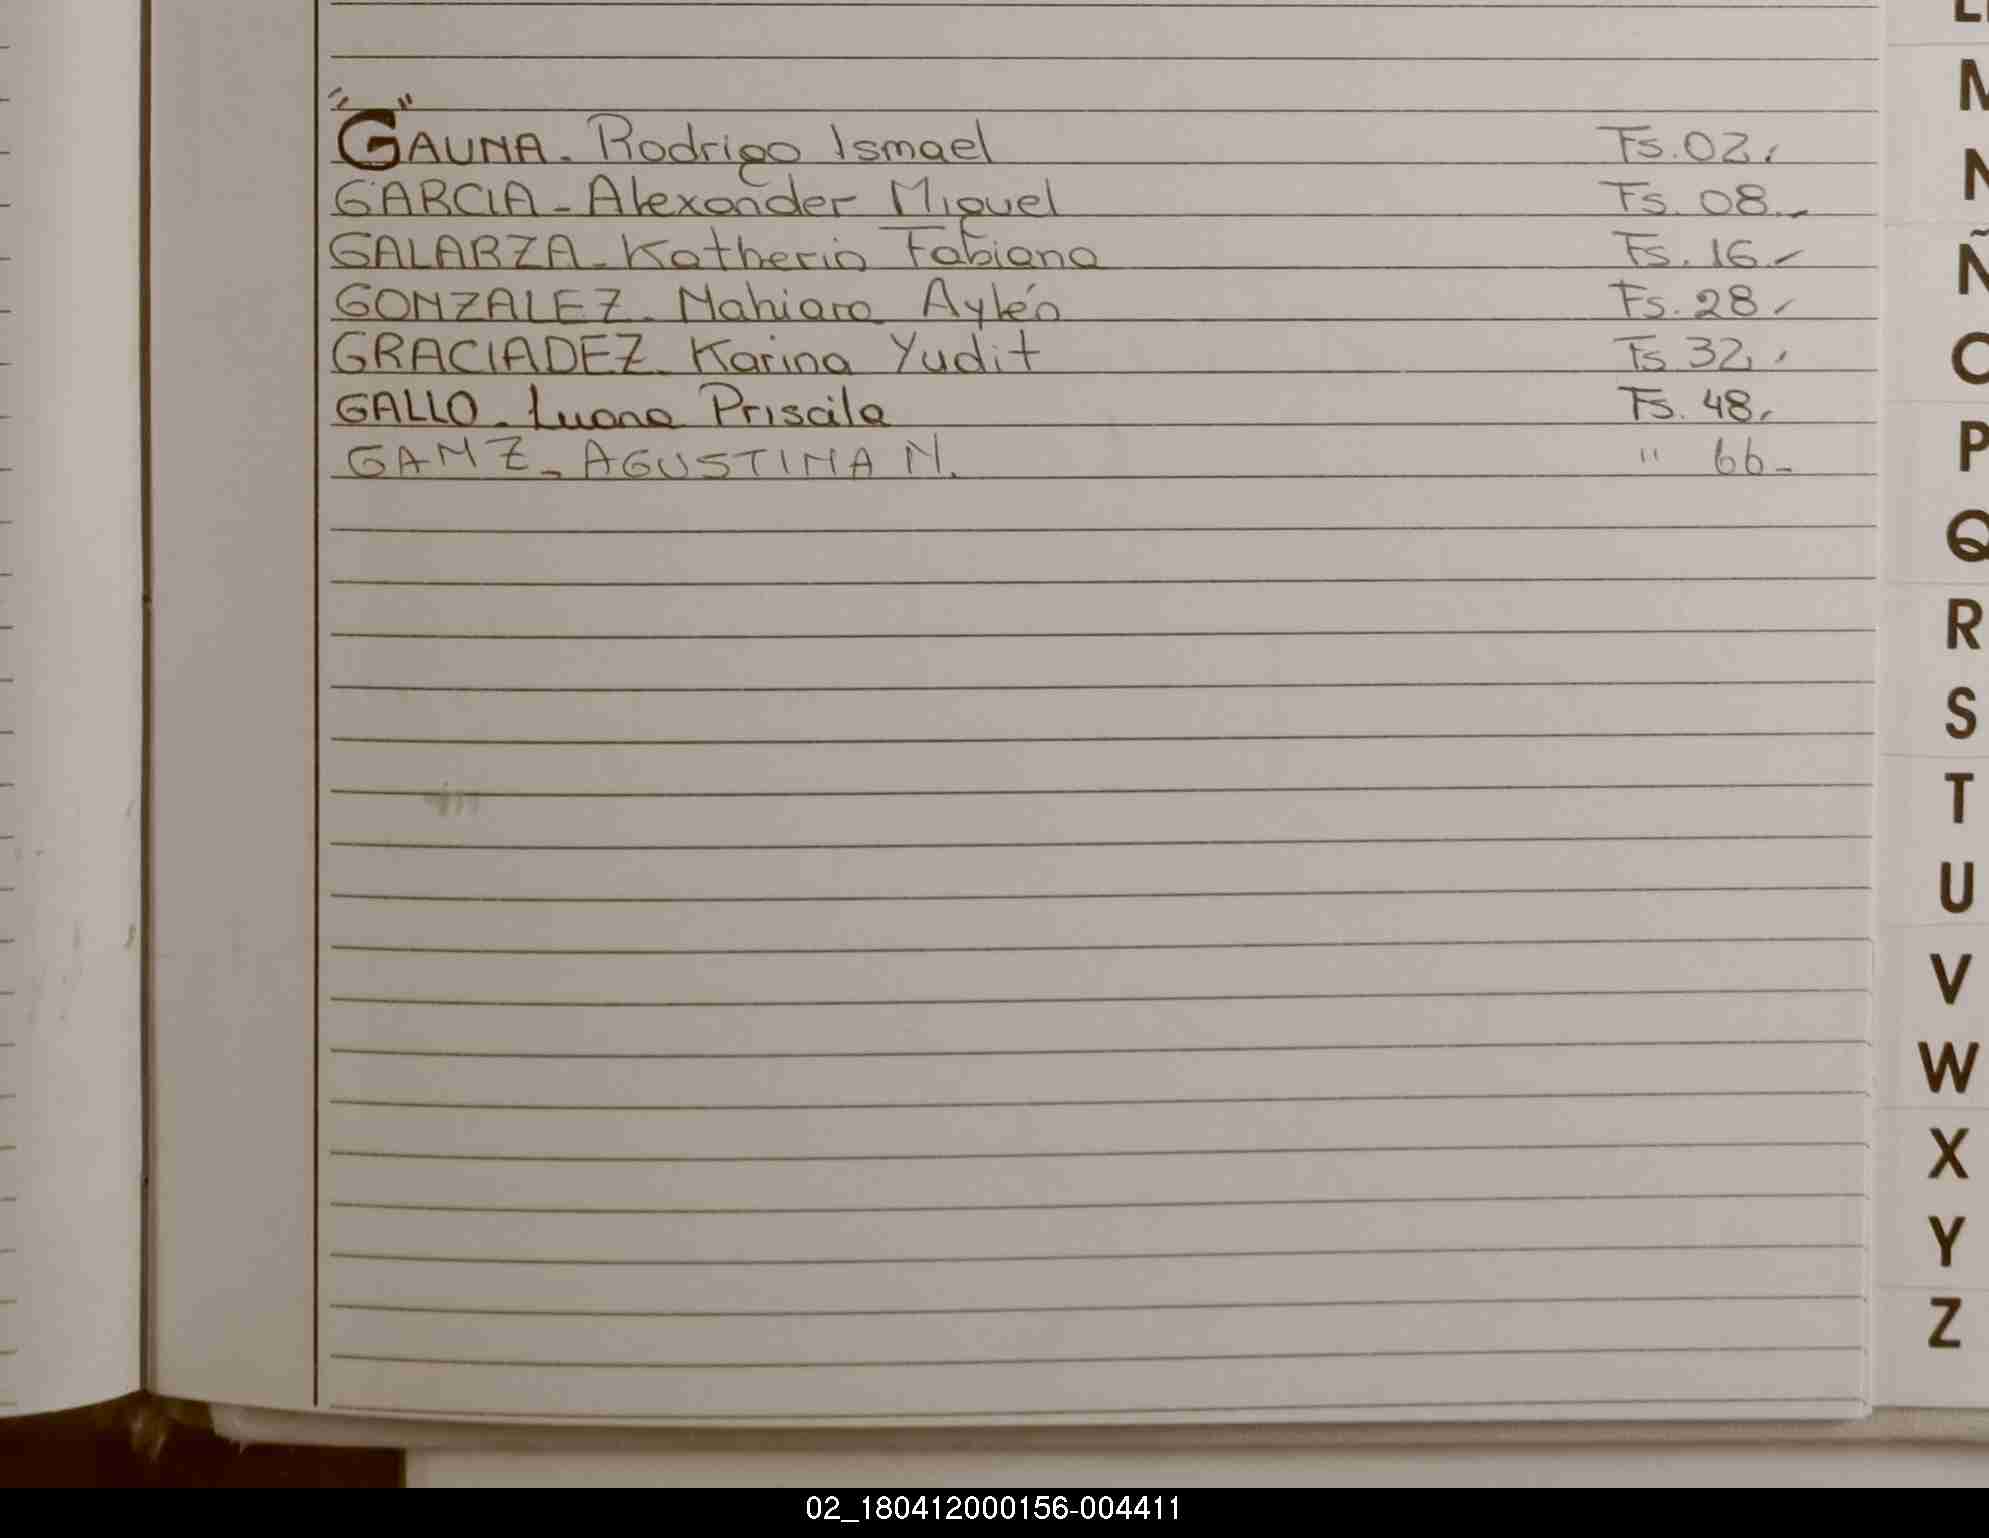 "G"AUNA. Rodrigo Ismael Fs. 02.
GARCIA - Alexander Miguel Fs. 08.-
GALARZA - Katherin Fabiana Fs. 16.-
GONZALEZ - Nahiara Aylén Fs. 28.-
GRACIADEZ - Karina Yudit Fs. 32.
GALLO - Luana Priscila Fs. 48.
GAMZ - AGUSTINA N. " 66-
M
N
Ñ
O
P
Q
R
S
T
U
V
W
X
Y
Z
02_180412000156-004411